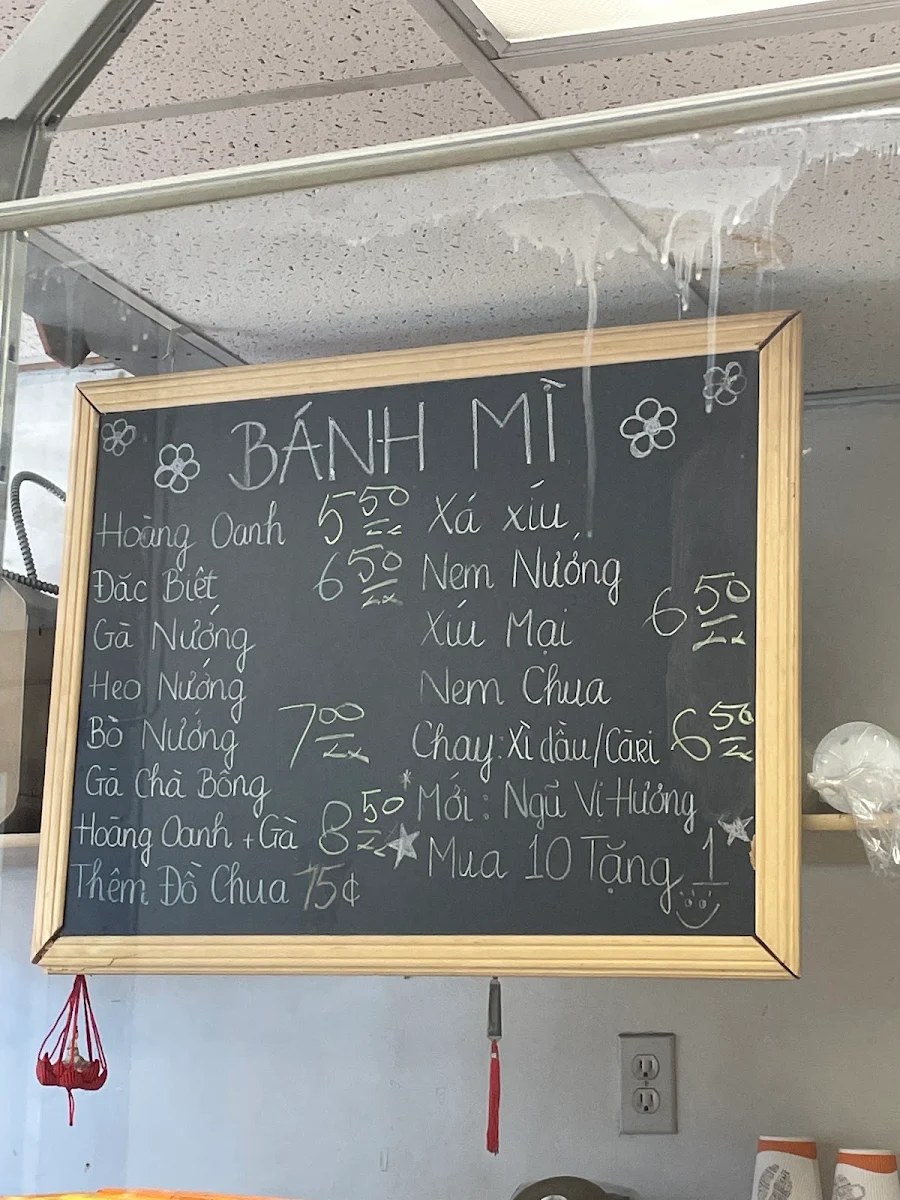 BÁNH MÌ
Hoàng Oanh 5.50
Đặc Biệt 6.50
Gà Nướng
Heo Nướng
Bò Nướng 7.00
Gà Chà Bông
Hoàng Oanh + Gà 8.50
Thêm Đồ Chua 75¢
Xá xíu
Nem Nướng
Xíu Mại 6.50
Nem Chua
Chay: Xì dầu/Cari 6.50
* Mới: Ngũ Vi Hương
Mua 10 Tặng 1